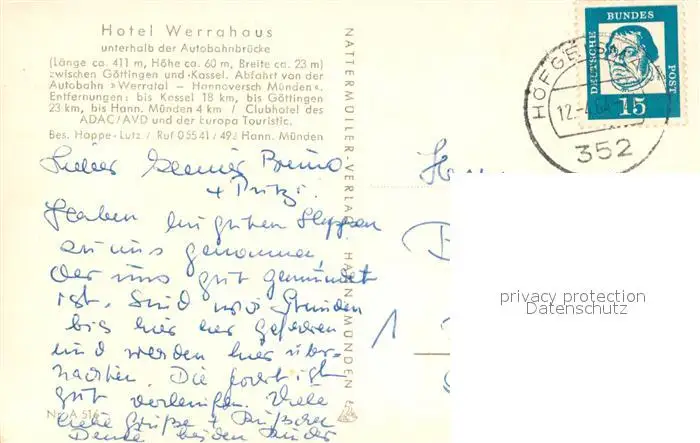 Hotel Werrahaus
unterhalb der Autobahnbrücke
(Länge ca. 411 m, Höhe ca. 60 m, Breite ca. 23 m)
zwischen Göttingen und Kassel. Abfahrt von der
Autobahn »Werratal – Hannoversch Münden«.
Entfernungen: bis Kassel 18 km, bis Göttingen
23 km, bis Hann. Münden 4 km / Clubhotel des
ADAC/AVD und der Europa Touristic.
Bes. Hoppe-Lutz / Ruf 05541/492 Hann. Münden
Lieber kleiner Bruno
+
Haben
zu uns genommen,
der uns gut gemundet
ist. Sind Stunden
bis hier her gefahren
und werden hier über-
nachten. Die Fahrt ist
gut verlaufen. Viele
liebe Grüße +
beiden
Nr. A 516
NATTERMÜLLER-VERLAG HANN. MÜNDEN
DEUTSCHE BUNDES POST
15
352
privacy protection
Datenschutz